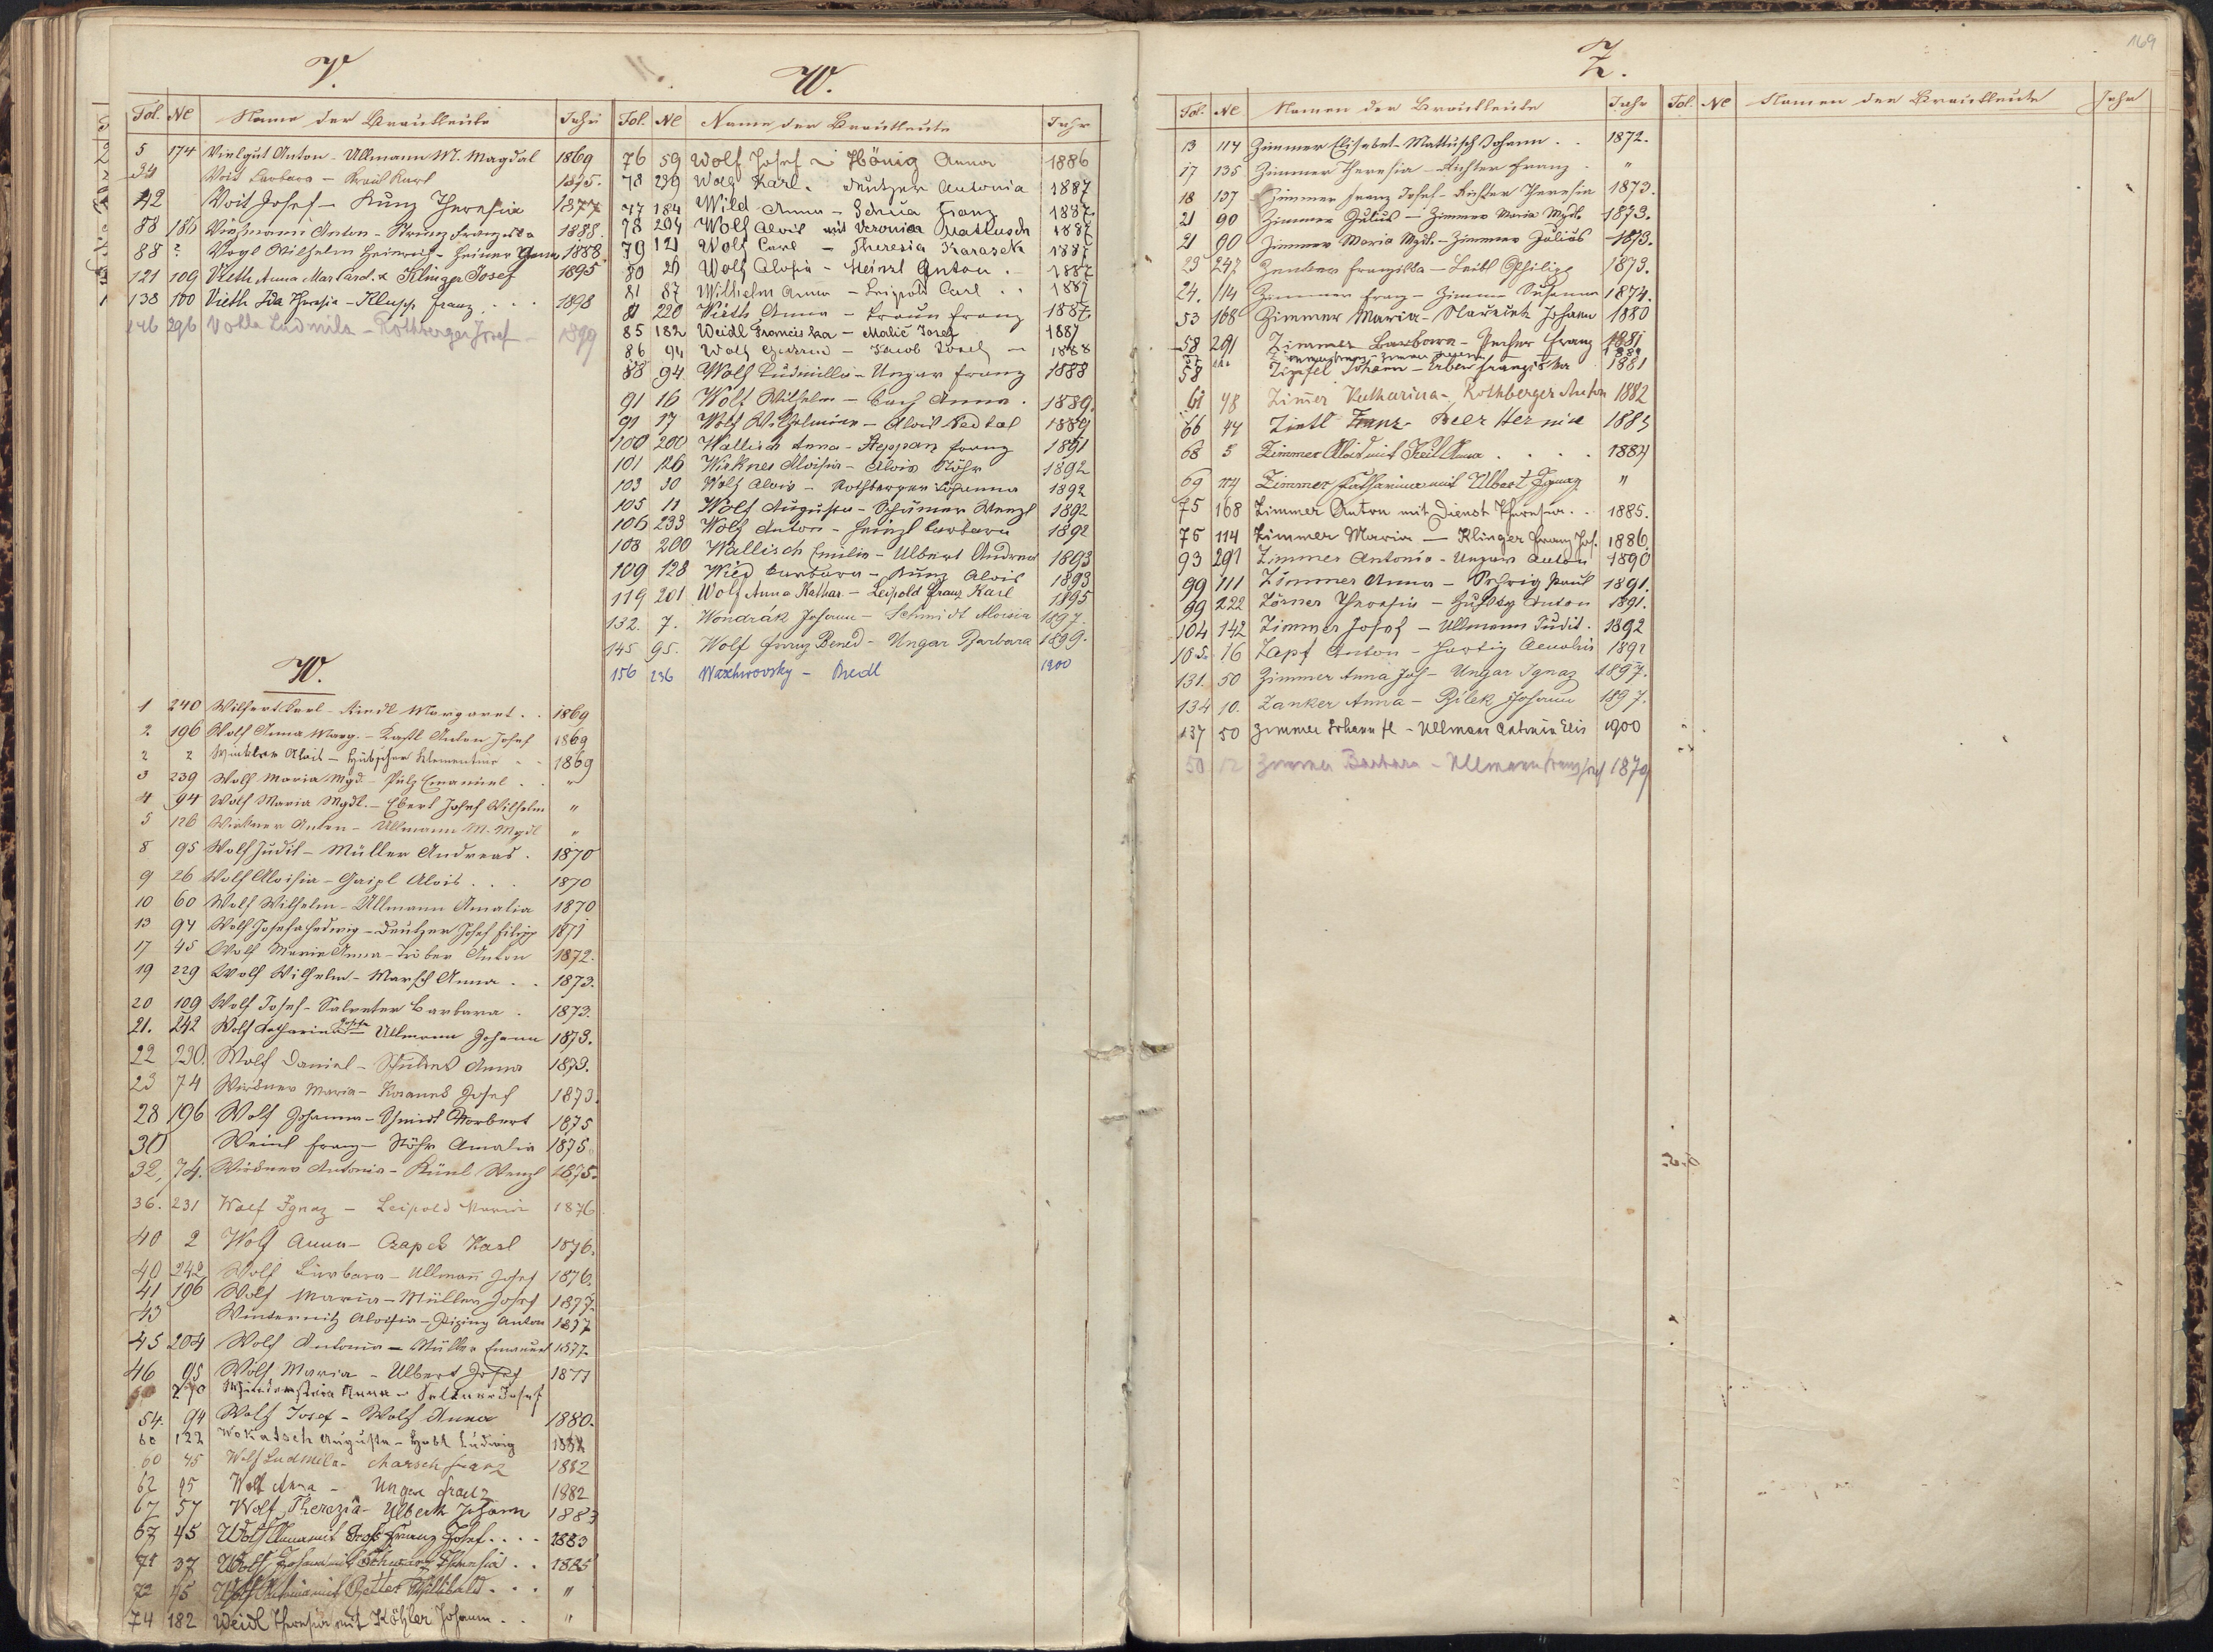 169
V.
Fol. № Name der Brautleute Jahr
5 174 Vielgut Anton - Ullmann M. Magdal 1869
Voit Barbara - Karl 1875.
42 Voit Josef - Kunz Theresia 1877
88 186 Anton - Franziska 1888.
88 ? Vogl Wilhelm Heinrich - Heiner Anna 1888
121 109 Vieth Anna Mar. Card. x Klinger Josef 1895
138 100 Vieth Ida Theresia - Franz . . . 1898
146 296 Volka Ludmila - Rothberger Josef - 1899
W.
1 240 Wilfert Karl - Riedl Margaret . . 1869
2 196 Wolf Anna Marg. - Anton Josef 1869
2 2 Winkler Alois - Hübscher Klementine - - 1869
3 239 Wolf Maria Mgd. - Pulz Emanuel . . "
4 94 Wolf Maria Mgdl. - Ebert Josef Wilhelm "
5 126 Wirkner Anton - Ullmann M. Mgdl "
8 95 Wolf Judit - Müller Andreas . 1870
9 26 Wolf Aloisia - Gaipl Alois . . . 1870
10 60 Wolf Wilhelm - Ullmann Amalia 1870
13 94 Wolf Josefa Hedwig - Deutzer Josef Filipp 1871
17 45 Wolf Maria Anna - Tröber Anton 1872.
19 229 Wolf Wilhelm - Marsch Anna . . 1873.
20 109 Wolf Josef - Salvater Barbara . 1873.
21. 242 Wolf Katharina Josefa Ullmann Johann 1873.
22 230. Wolf Daniel - Anna 1873.
23 74 Wirkner Maria - Josef 1873.
28 196 Wolf Johanna - Schmidt Norbert 1875
30 Weinl Franz - Stöhr Amalia 1875
32, 74. Wirkner Antonia - Künl Wenzl 1875.
36. 231 Wolf Ignaz - Leipold Maria 1876
40 2 Wolf Anna - Czapek Karl 1876.
40 242 Wolf Barbara - Ullmañ Josef 1876.
41 196 Wolf Maria - Müller Josef 1877.
43 Winternitz Aloisia - Anton 1877
45 204 Wolf Antonia - Müller Emanuel 1877.
46 95 Wolf Maria - Ulbert Josef 1877
Anna - Josef
54. 94 Wolf Josef - Wolf Anna 1880.
60 122 Wokatsch Augusta - Ludwig 1882
60 45 Wolf Ludmila - Marsch Franz 1882
62 95 Wolf Anna - Ungar Franz 1882
67 57 Wolf Therezia - Ulbert Johann 1883
67 45 Wolf Anna mit Franz Josef . . . . 1883
71 37 Wolf Johann mit Schwarz Theresia . . 1885
72 45 Wolf mit Willibald . . . "
74 182 Weidl Theresia mit Köhler Johann . . "
W.
Fol. № Name der Brautleute Jahr
76 59 Wolf Josef - Hönig Anna 1886
78 239 Wolf Karl - Deutzer Antonia 1887
77 184 Wild Anna - Franz 1887.
78 204 Wolf Alois mit Veronica Mattusch 1887
79 121 Wolf Carl - Theresia Karasek 1887
80 26 Wolf Alosia - Meinzl Anton . - 1887
81 87 Wilhelm Anna - Leipold Carl . . 1887
81 220 Vieth Anna - Braun Franz 1887.
85 182 Weidl Franciska - Malič Josef 1887
86 94 Wolf - Jacob Josef - 1888
88 94 Wolf Ludmilla - Ungar Franz 1888
91 16 Wolf Wilhelm - Bach Anna . 1889.
91 17 Wolf Wilhelmine - Alois Nedbal 1889
100 200 Wallisch Anna - Steppan Franz 1891
101 126 Wirkner Aloisia - Alois Stöhr 1892
103 30 Wolf Alois - Rothberger Johanna 1892
105 11 Wolf Augusta - Schirmer Wenzl 1892
106 233 Wolf Anton - Heinzl Barbara 1892
108 200 Wallisch Emilie - Ulbert Andreas 1893
109 128 Wied Barbara - Kunz Alois 1893
119 201 Wolf Anna Kathar. - Leipold Franz Karl 1895
132. 7. Wondrák Johann - Schmidt Aloisia 1897.
145 95. Wolf Franz Bened - Ungar Barbara 1899.
156 236 Waschirovsky - Riedl 1900
Z.
Fol. № Namen der Brautleute Jahr
Fol. № Namen der Brautleute Jahr
13 114 Zimmer Elisabet - Mattusch Johann . . 1872.
17 135 Zimmer Theresia - Richter Franz . "
18 137 Zimmer Franz Josef - Richter Theresia 1873.
21 90 Zimmer Julius - Zimmer Maria Mgdl. 1873.
21 90 Zimmer Maria Mgdl. - Zimmer Julius 1873.
23 247 Zenker Franziska - Leitl Philipp 1873.
24. 114 Zimmer Franz - Zimmer Susanna 1874.
53 168 Zimmer Maria - Johann 1880
58 291 Zimmer Barbara - Pecher Franz 1881
58 Zipfel Johann - Erben Franziska 1881
61 48 Zimer Katharina - Rothberger Anton 1882
66 44 Zietl Franz - Beer Hermine 1883
68 5 Zimmer Alois mit Keil Anna . . . . 1884
69 114 Zimmer Katharina mit Ulbert Ignaz "
75 168 Zimmer Anton mit Dienst Theresia . . 1885.
75 114 Zimmer Maria - Klinger Franz Jos. 1886
93 291 Zimmer Antonia - Ungar Anton 1890
99 111 Zimmer Anna - Paul 1891.
99 222 Zörner Theresia - Anton 1891.
104 142 Zimmer Josef - Ullmann Judit . 1892
105. 16 Zapf Anton - Hartig Amalia 1892
131. 50 Zimmer Anna Jos - Ungar Ignaz 1897.
134 10. Zanker Anna - Bilek Johann 1897.
137 50 Zimmer Johann - Ullmann Antonia Elis 1900
50 12 Zimmer Barbara - Ullmann Franz Josef 1879